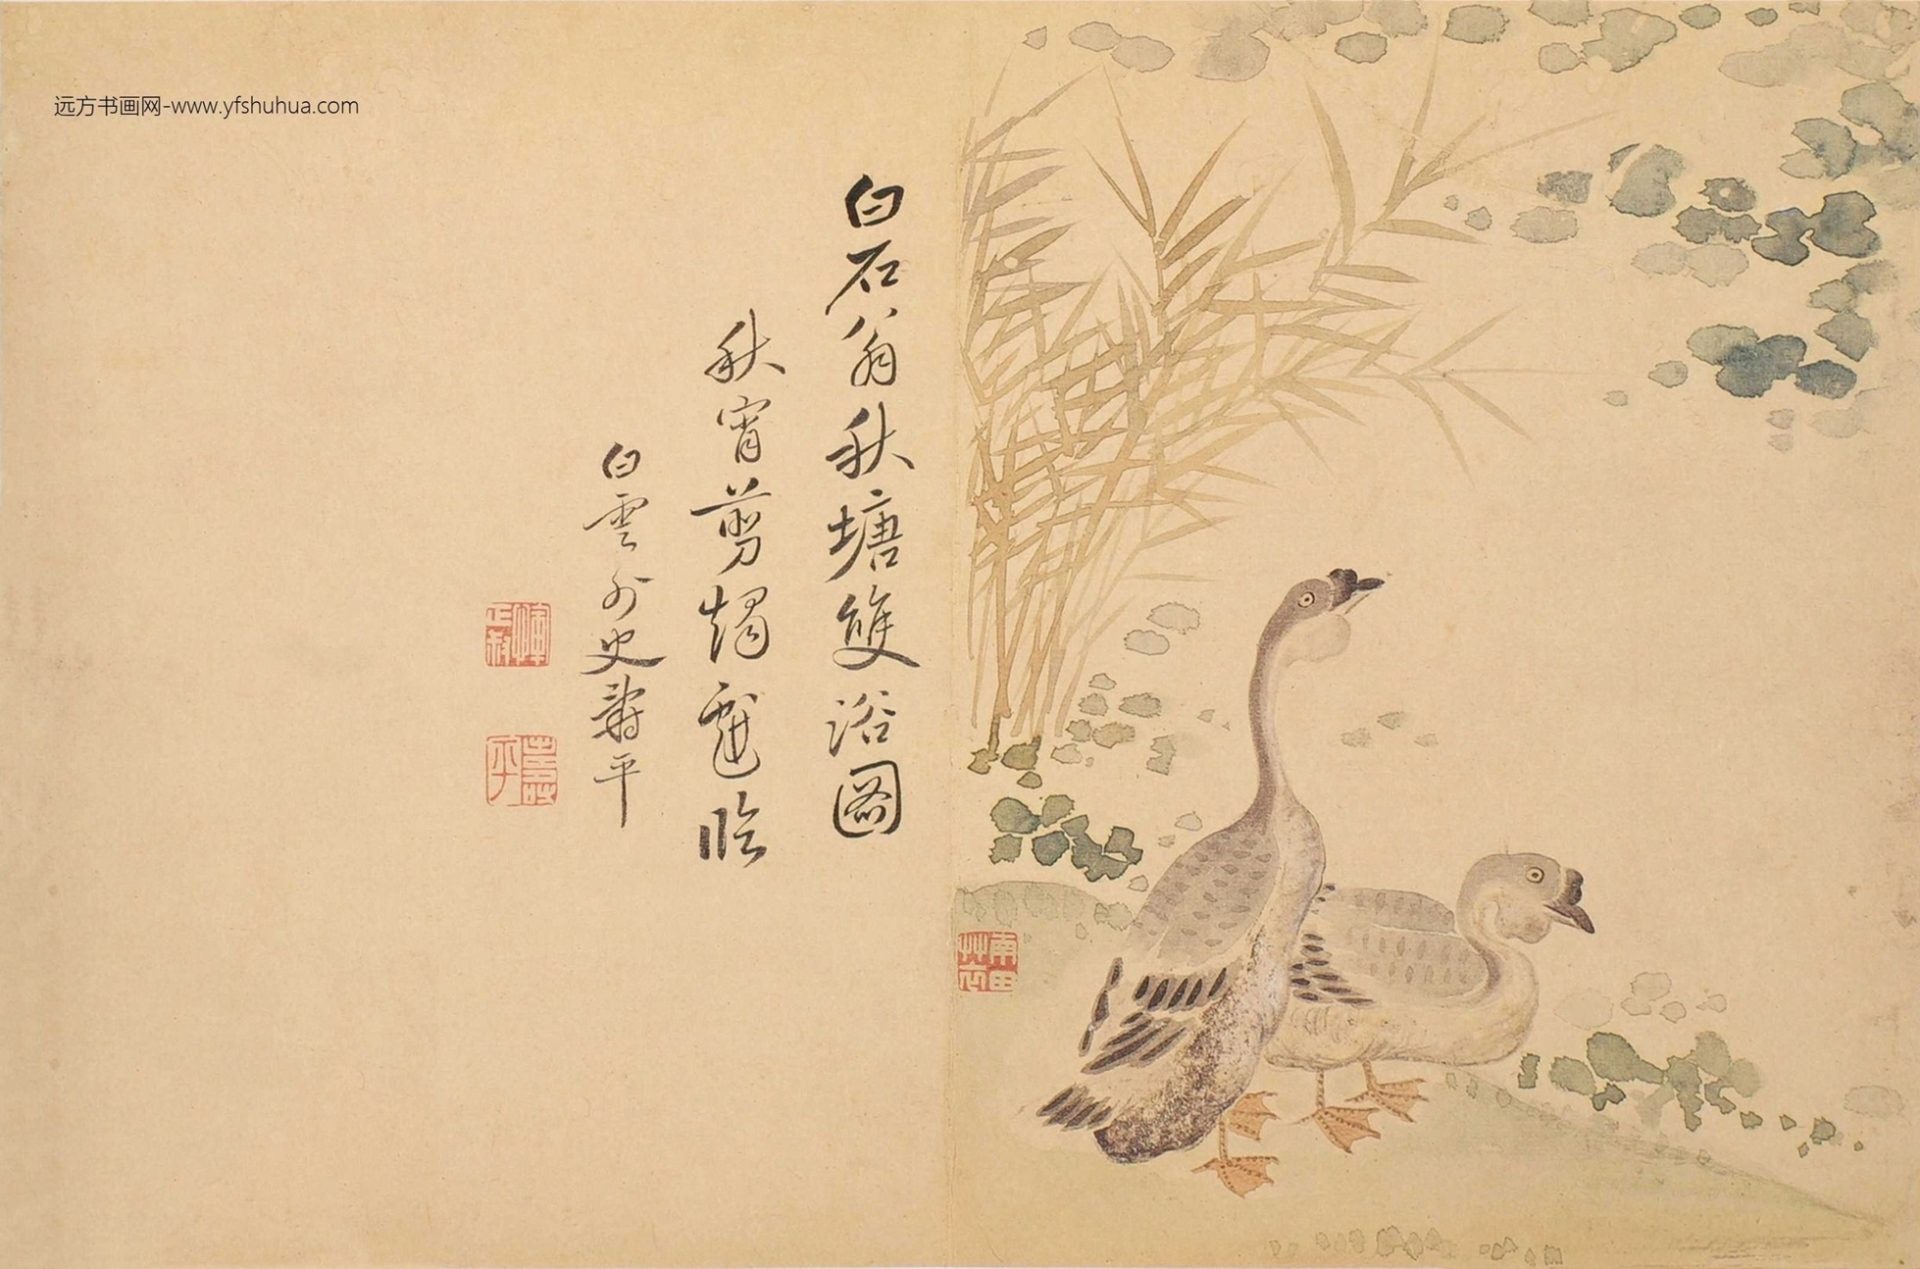 远方书画网-www.yfshuhua.com
白石翁秋塘雙浴圖
秋宵剪燭戲臨
白雲外史壽平
惲正叔
壽平
南田艸衣